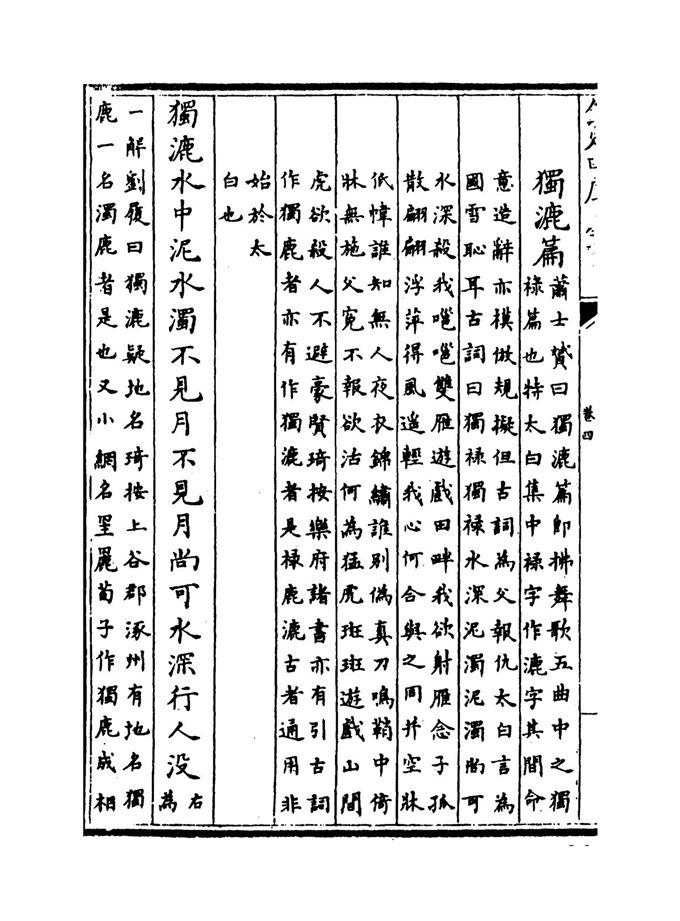 卷四
獨漉篇
蕭士贇曰獨漉篇即拂舞歌五曲中之獨
祿篇也特太白集中祿字作漉字其間命
意造辭亦模倣規擬但古詞為父報仇太白言為
國雪恥耳古詞曰獨祿獨祿水深泥濁泥濁尚可
水深殺我嗈嗈雙雁遊戲田畔我欲射雁念子孤
散翩翩浮萍得風遥輕我心何合與之同并空牀
低幃誰知無人夜衣錦繡誰別偽真刀鳴鞘中倚
牀無施父寃不報欲活何為猛虎斑斑遊戲山間
虎欲殺人不避豪賢琦按樂府諸書亦有引古詞
作獨鹿者亦有作獨漉者是祿鹿漉古者通用非
始於太
白也
獨漉水中泥水濁不見月不見月尚可水深行人没
右
為
一解劉履曰獨漉疑地名琦按上谷郡涿州有地名獨
鹿一名濁鹿者是也又小網名罜䍡荀子作獨鹿成相